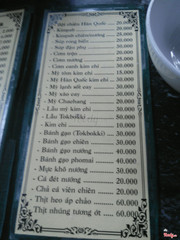 - Nạp chiên Hàn Quốc - 20.000
- Kimpab - 10.000
- Kimpab chiên tương - 20.000
- Nạp rong biển - 20.000
- Nạp đậu phụ - 30.000
- Cơm trộn - 30.000
- Cơm nướng - 25.000
- Cơm canh kim chi - 30.000
- Mỳ tôm kim chi - 15.000
- Mỳ Hàn Quốc kim chi - 25.000
- Mỳ lạnh sốt cay - 30.000
- Mỳ xào cay - 30.000
- Mỳ Chachang - 20.000
- Lẩu mỳ kim chi - 20.000
- Lẩu Tokbokki - 20.000
- Kim chi - 10.000
- Bánh gạo (Tokbokki) - 20.000
- Bánh gạo chiên - 30.000
- Bánh gạo nướng - 40.000
- Bánh gạo phomai - 40.000
- Mực khô nướng - 30.000
- Cá đét nướng - 20.000
- Chả cá viên chiên - 20.000
- Thịt heo áp chảo - 60.000
- Thịt nhúng tương ớt - 60.000